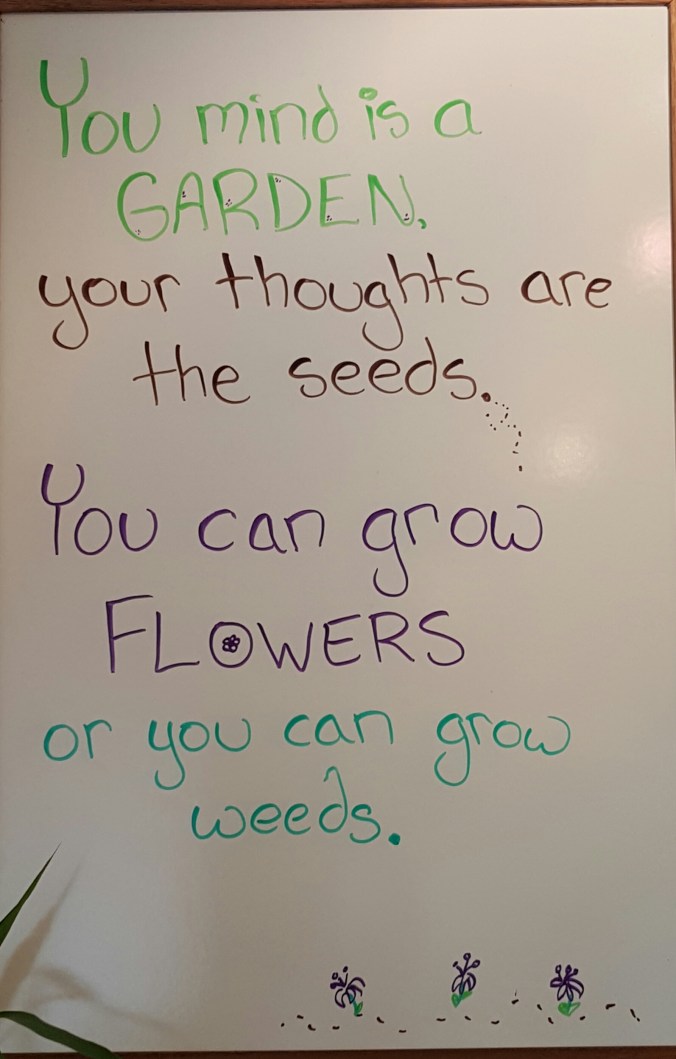 You mind is a
GARDEN,
your thoughts are
the seeds.
You can grow
FLOWERS
or you can grow
weeds.